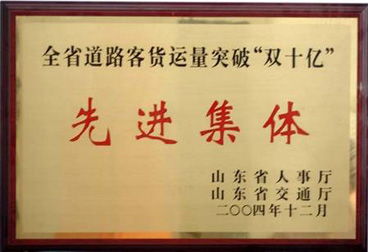 全省道路客货运量突破“双十亿”
先进集体
山东省人事厅
山东省交通厅
二〇〇四年十二月